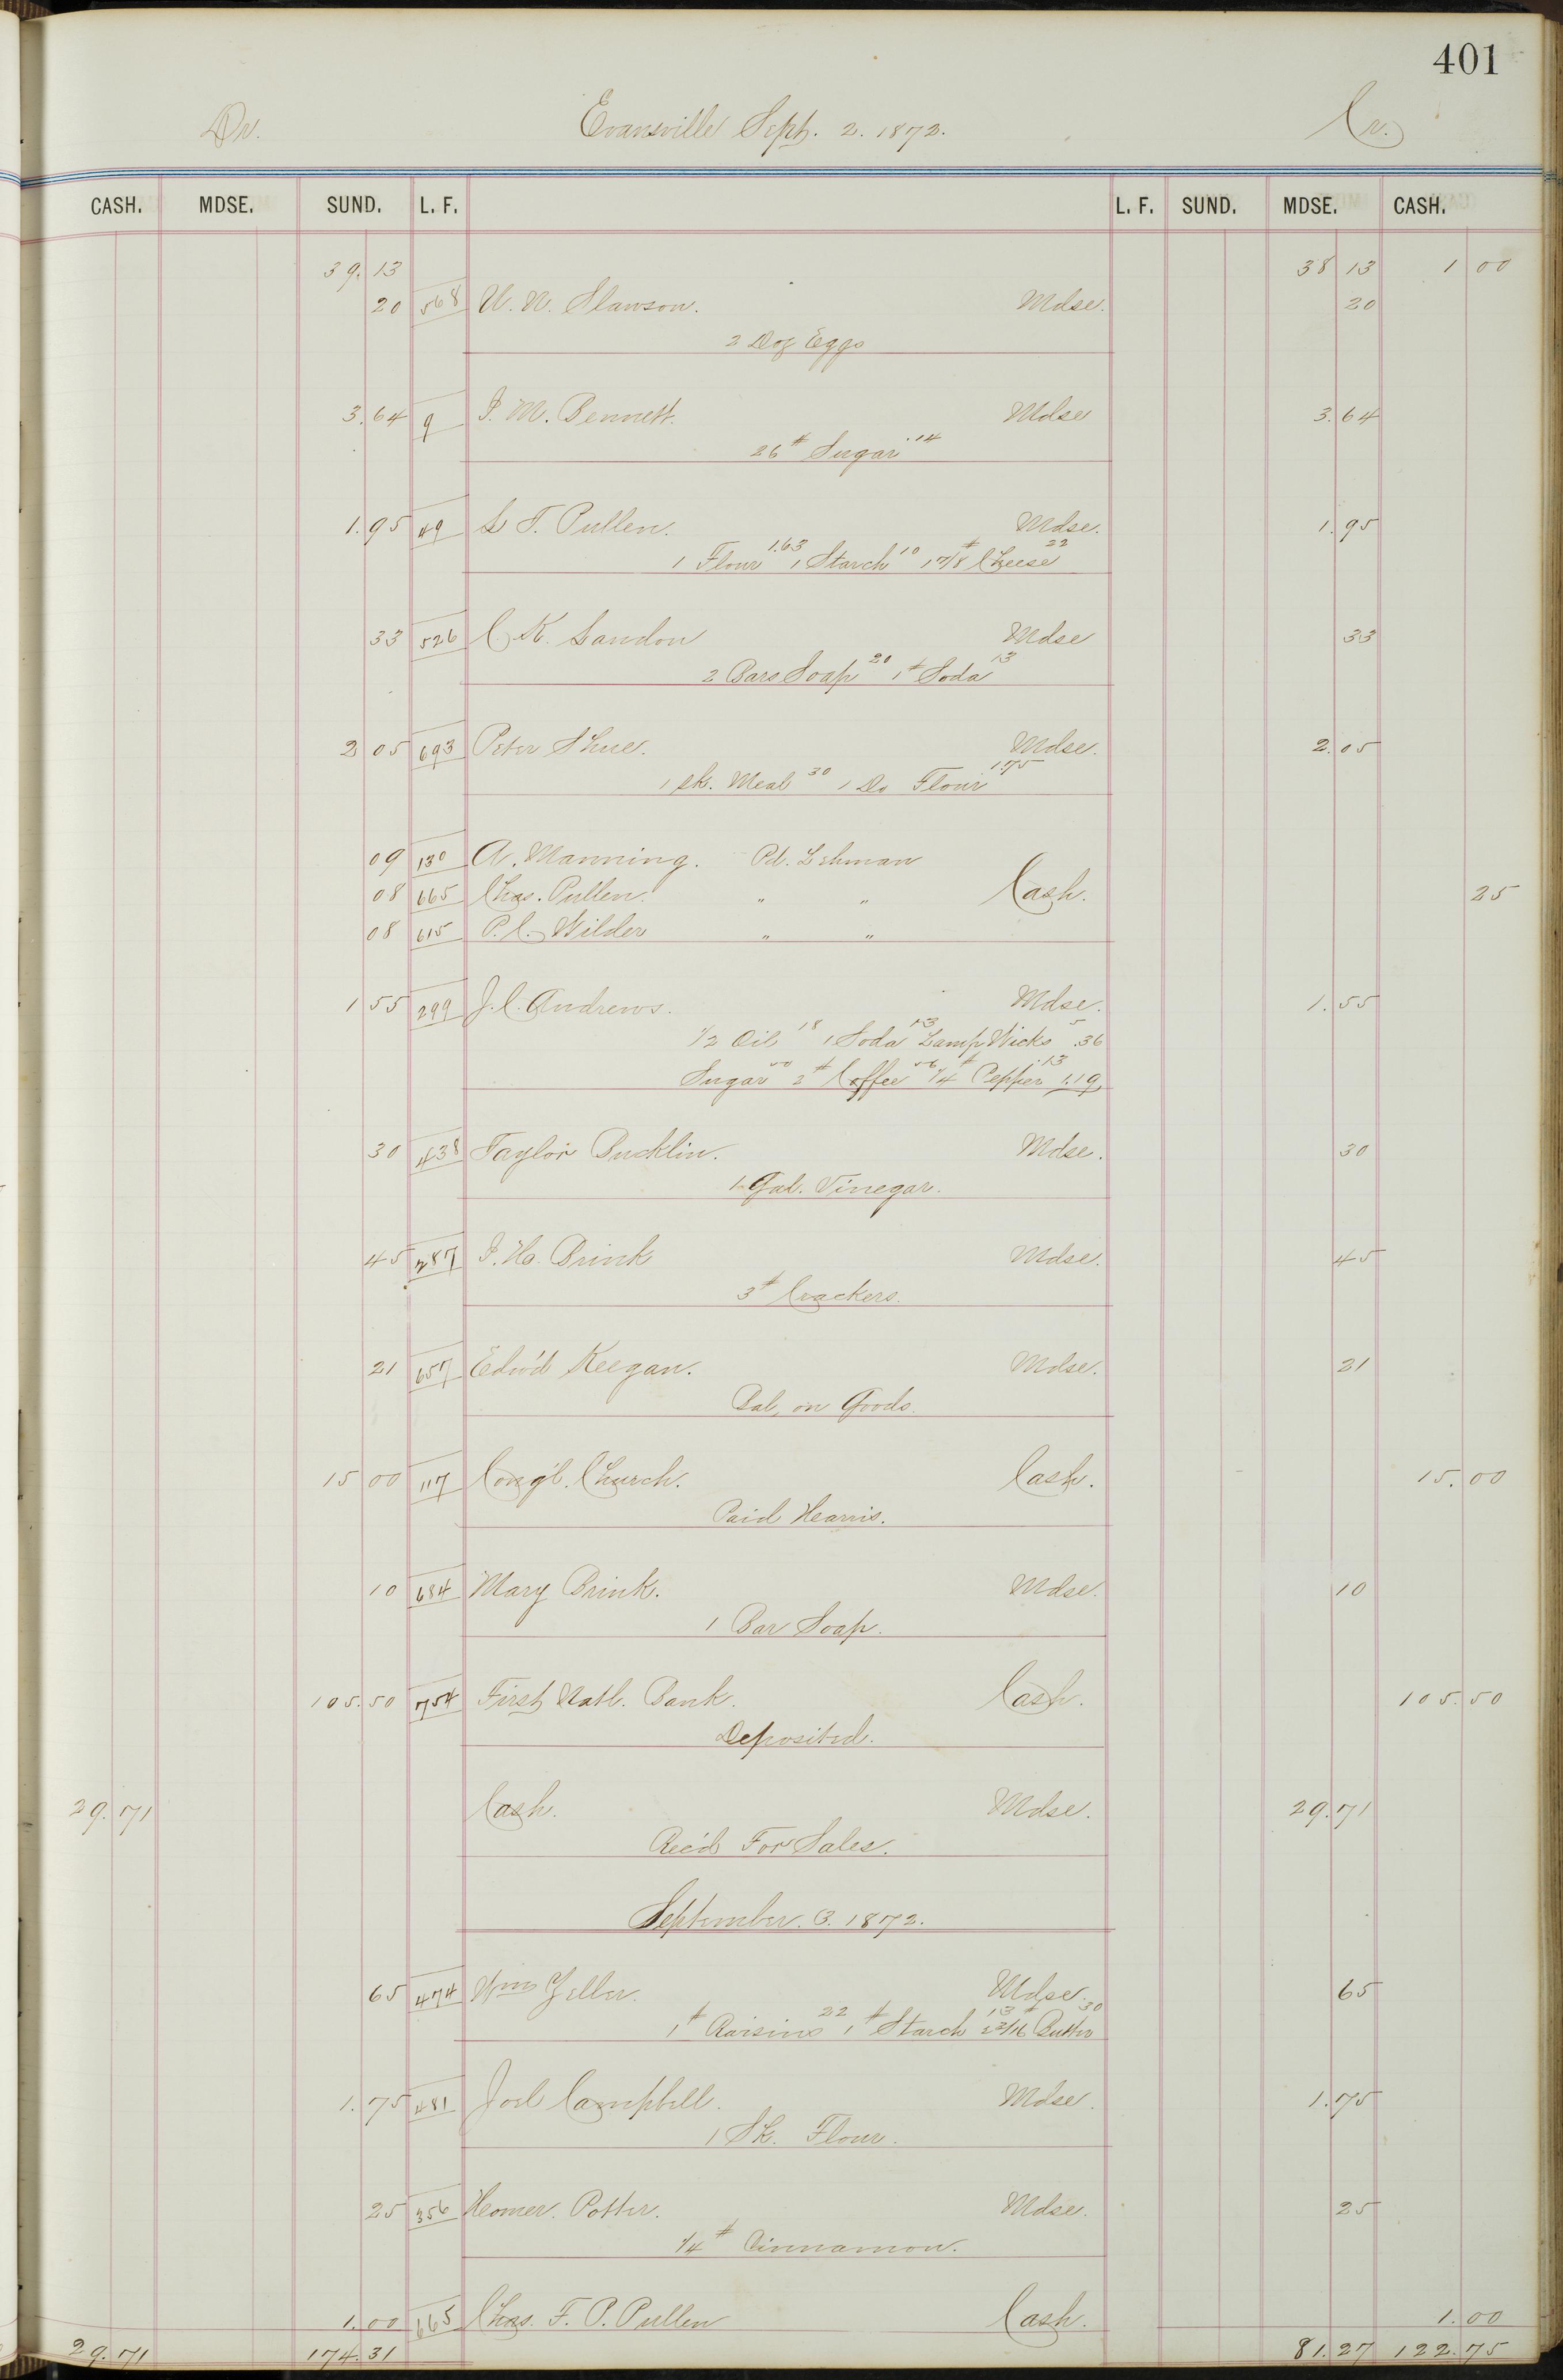 401
Dr. Evansville Sept. 2. 1872. Cr.
CASH. MDSE. SUND. L. F. L. F. SUND. MDSE. CASH.
39.13 38 13 1 00
20 568 Slawson. Mdse. 20
2 Doz Eggs
3.64 9 I. M. Bennett. Mdse 3.64
26# Sugar .14
1.95 49 L T. Pullen. Mdse. 1.95
1 Flour 1.63 1 Starch 10 1 7/8# Cheese 22
33 526 C. K. Landon Mdse 33
2 Bars Soap 20 1# Soda 13
2 05 693 Peter Shue. Mdse. 2.05
1 sk. Meal 30 1 Do Flour 1.75
09 130 A. Manning. Pd. Lehman
08 665 Chas. Pullen. " " Cash. 25
08 615 P. C. Wilder " "
1 55 299 J. C. Andrews. Mdse. 1.55
1/2 Oil 18 1 Soda 13 Lamp Wicks 5 .36
Sugar 50 2# Coffee 56 1/4# Pepper .13 1.19
30 438 Taylor Bucklin. Mdse. 30
1 Gal. Vinegar.
45 287 I. H. Brink Mdse. 45
3# Crackers.
21 657 Edw'd Keegan. Mdse. 21
Bal, on Goods.
15 00 117 Cong'l. Church. Cash. 15.00
Paid Hearris.
10 684 Mary Brink. Mdse. 10
1 Bar Soap.
105.50 754 First Natl. Bank. Cash. 105.50
Deposited.
29.71 Cash. Mdse. 29.71
Rec'd For Sales.
September. 3. 1872.
65 474 Wm Zeller. Mdse. 65
1# Raisins 22 1# Starch 13 Butter 30
1.75 481 Joel Campbell. Mdse. 1.75
1 Sk. Flour.
25 356 Homer. Potter. Mdse. 25
1/4# Cinnamon.
1.00 665 Chas. F. P. Pullen Cash. 1.00
29.71 174.31 81.27 122.75